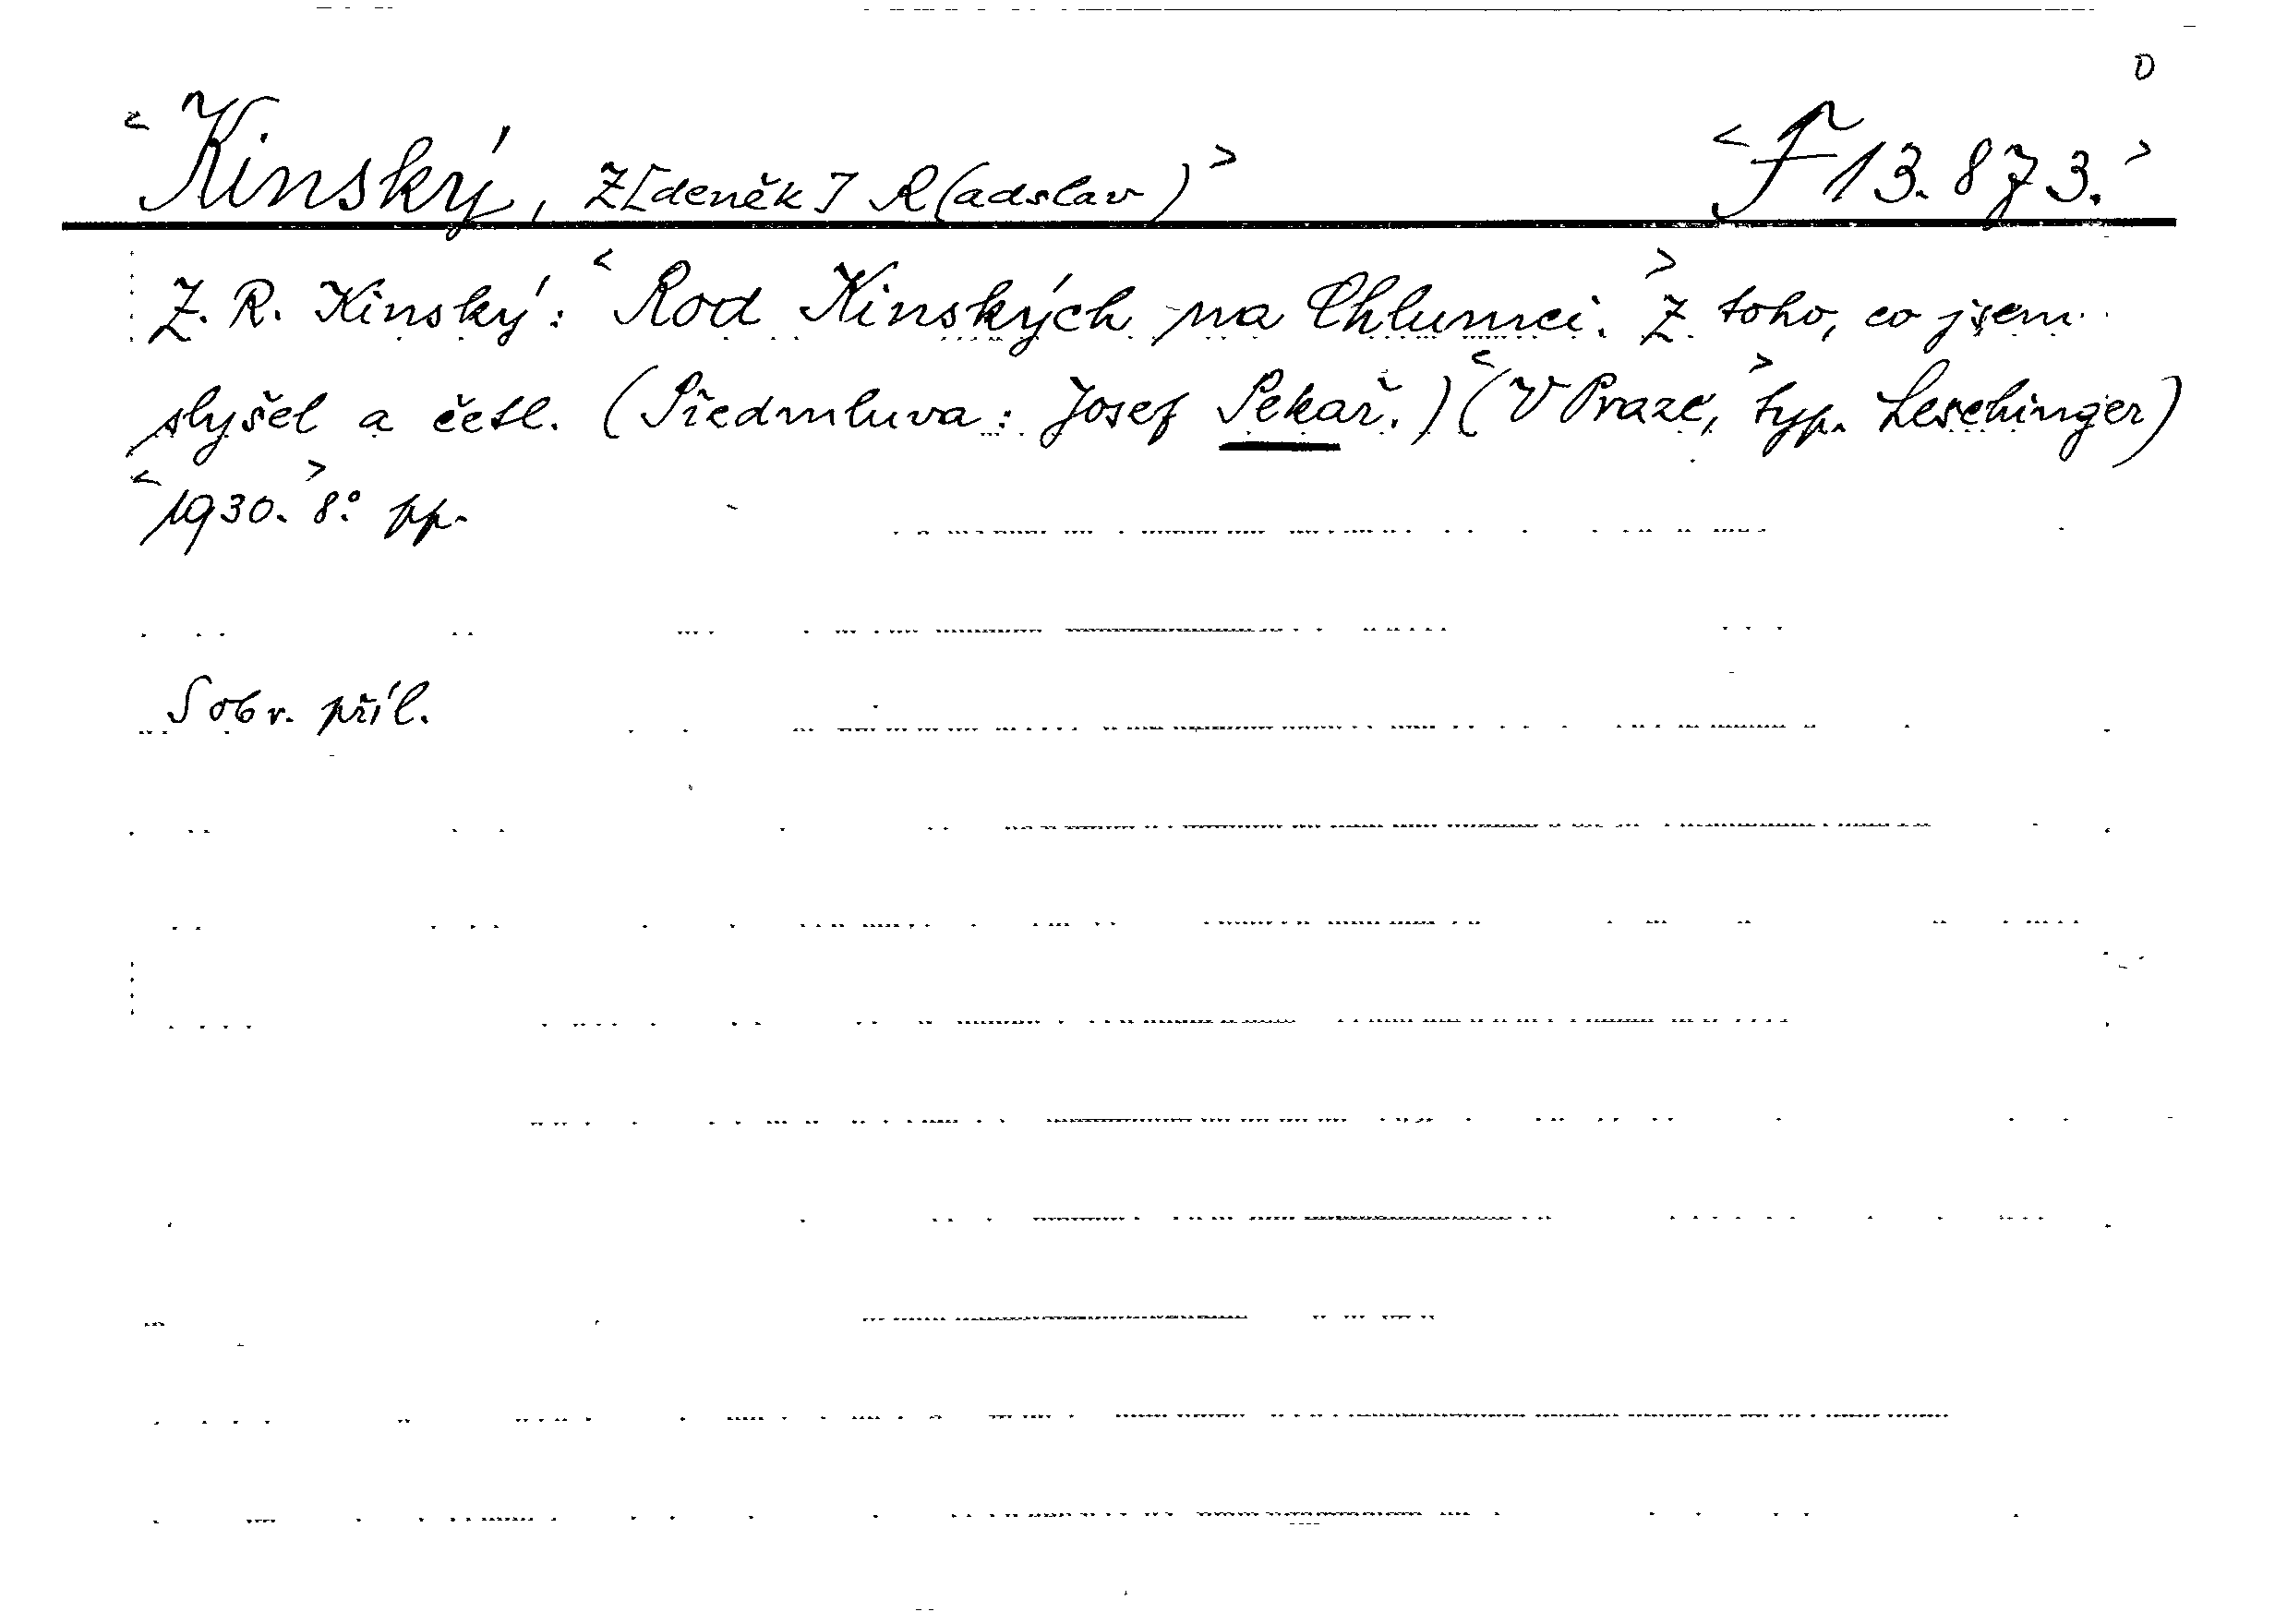 0
<Kinský, Z[deněk] R(adslav)> <F 13.873.>
Z. R. Kinský: <Rod Kinských na Chlumci.> Z toho, co jsem
slyšel a četl. (Předmluva: Josef Pekař.) <(V Praze,> typ. Leschinger)
<1930.> 8°. pp.
S obr. příl.